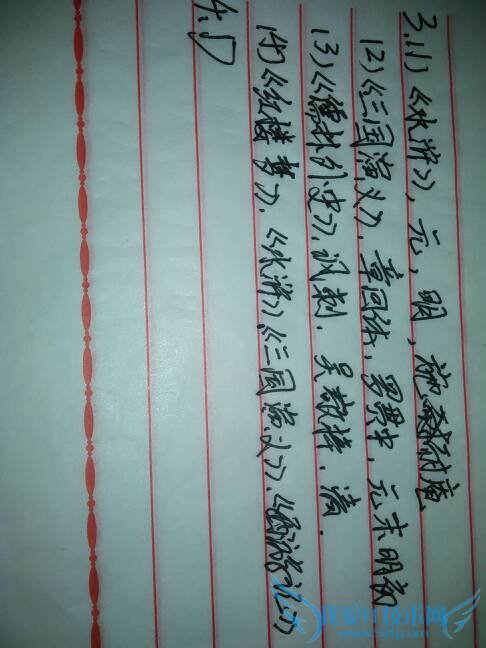 3.(1)《水浒》,元,明,施耐庵
(2)《三国演义》,章回体,罗贯中,元末明初
(3)《儒林外史》,讽刺.吴敬梓.清.
(4)《红楼梦》.《水浒》《三国演义》.《西游记》
4.D
我爱IT技术网
www.52ij.com